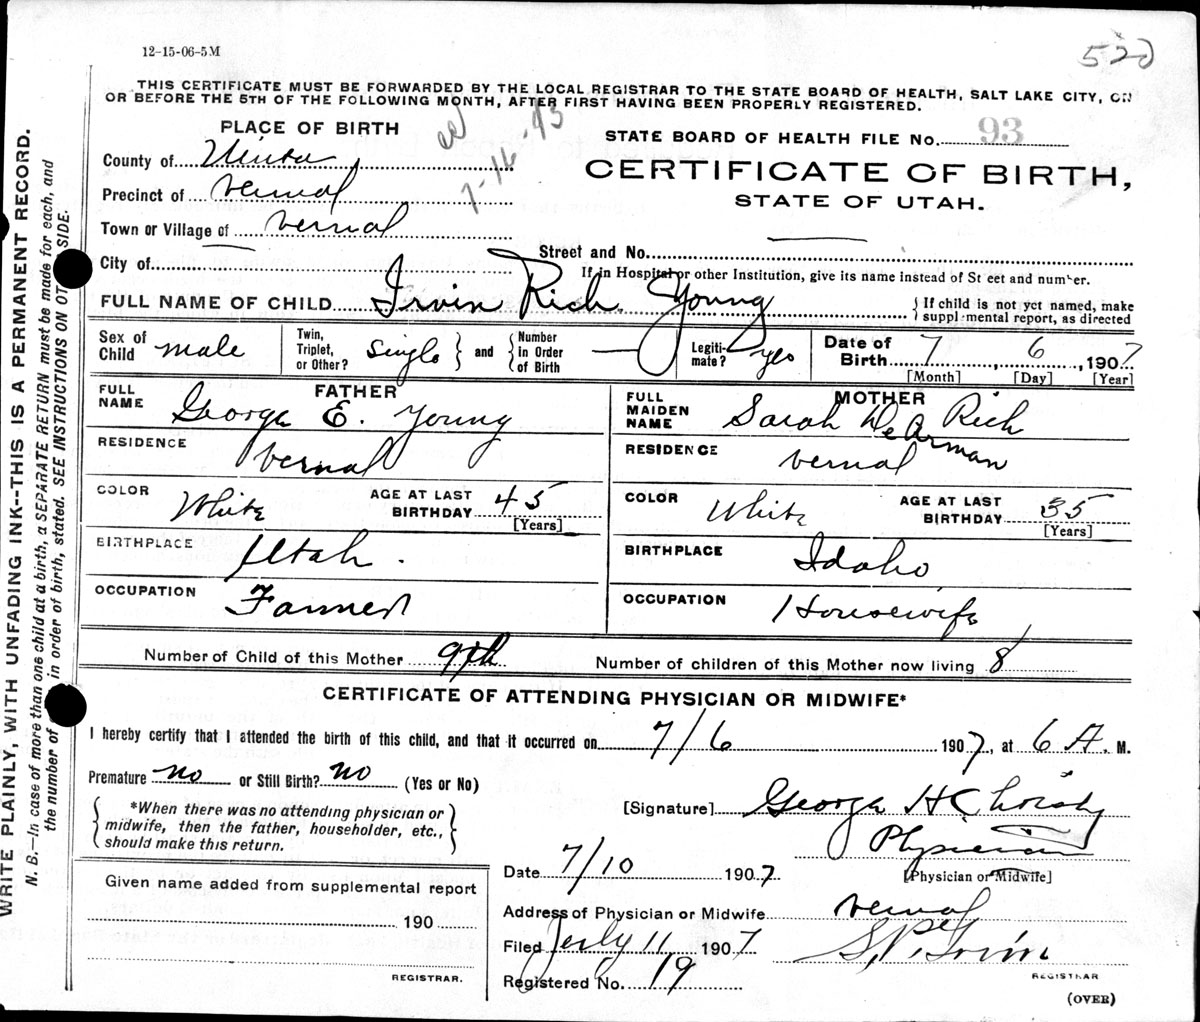 12-15-06-5M
522
THIS CERTIFICATE MUST BE FORWARDED BY THE LOCAL REGISTRAR TO THE STATE BOARD OF HEALTH, SALT LAKE CITY, ON
OR BEFORE THE 5TH OF THE FOLLOWING MONTH, AFTER FIRST HAVING BEEN PROPERLY REGISTERED.
PLACE OF BIRTH
7-16-43
STATE BOARD OF HEALTH FILE No. 93
County of Uinta
CERTIFICATE OF BIRTH,
Precinct of Vernal
STATE OF UTAH.
Town or Village of Vernal
Street and No.
City of
If in Hospital or other Institution, give its name instead of St eet and number.
FULL NAME OF CHILD Irvin Rich Young
If child is not yet named, make
supplemental report, as directed
Sex of Child male
Twin, Triplet, or Other? Single and Number in Order of Birth
Legitimate? yes
Date of Birth 7, 6, 1907
[Month] [Day] [Year]
FATHER
FULL NAME George E. Young
RESIDENCE Vernal
COLOR White AGE AT LAST BIRTHDAY 45
[Years]
BIRTHPLACE Utah.
OCCUPATION Farmer
MOTHER
FULL MAIDEN NAME Sarah DeArman Rich
RESIDENCE Vernal
COLOR White AGE AT LAST BIRTHDAY 35
[Years]
BIRTHPLACE Idaho
OCCUPATION Housewife
Number of Child of this Mother 9th Number of children of this Mother now living 8
CERTIFICATE OF ATTENDING PHYSICIAN OR MIDWIFE*
I hereby certify that I attended the birth of this child, and that it occurred on 7/6 1907, at 6 A. M.
Premature no or Still Birth? no (Yes or No)
*When there was no attending physician or
midwife, then the father, householder, etc.,
should make this return.
[Signature] George H Christy
Physician
[Physician or Midwife]
Given name added from supplemental report
190
REGISTRAR.
Date 7/10 1907
Address of Physician or Midwife Vernal
Filed July 11 1907
Registered No. 19
REGISTRAR
(OVER)
WRITE PLAINLY, WITH UNFADING INK--THIS IS A PERMANENT RECORD.
N. B.—In case of more than one child at a birth, a SEPARATE RETURN must be made for each, and
the number of in order of birth, stated. SEE INSTRUCTIONS ON OT SIDE.